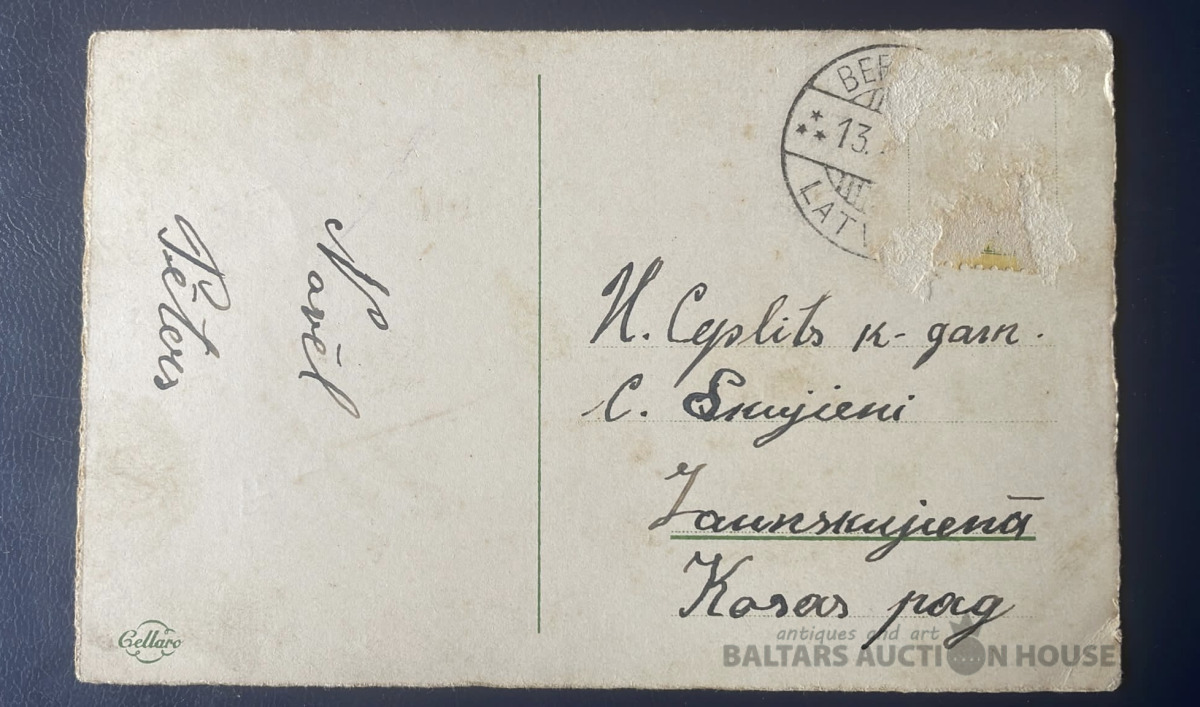 Novēl
Pēters
BER
13.
LATV
H. Ceplits k-gam.
C. Skujieni
Jaunskujenā
Kosas pag
Cellaro
antiques and art
BALTARS AUCTION HOUSE